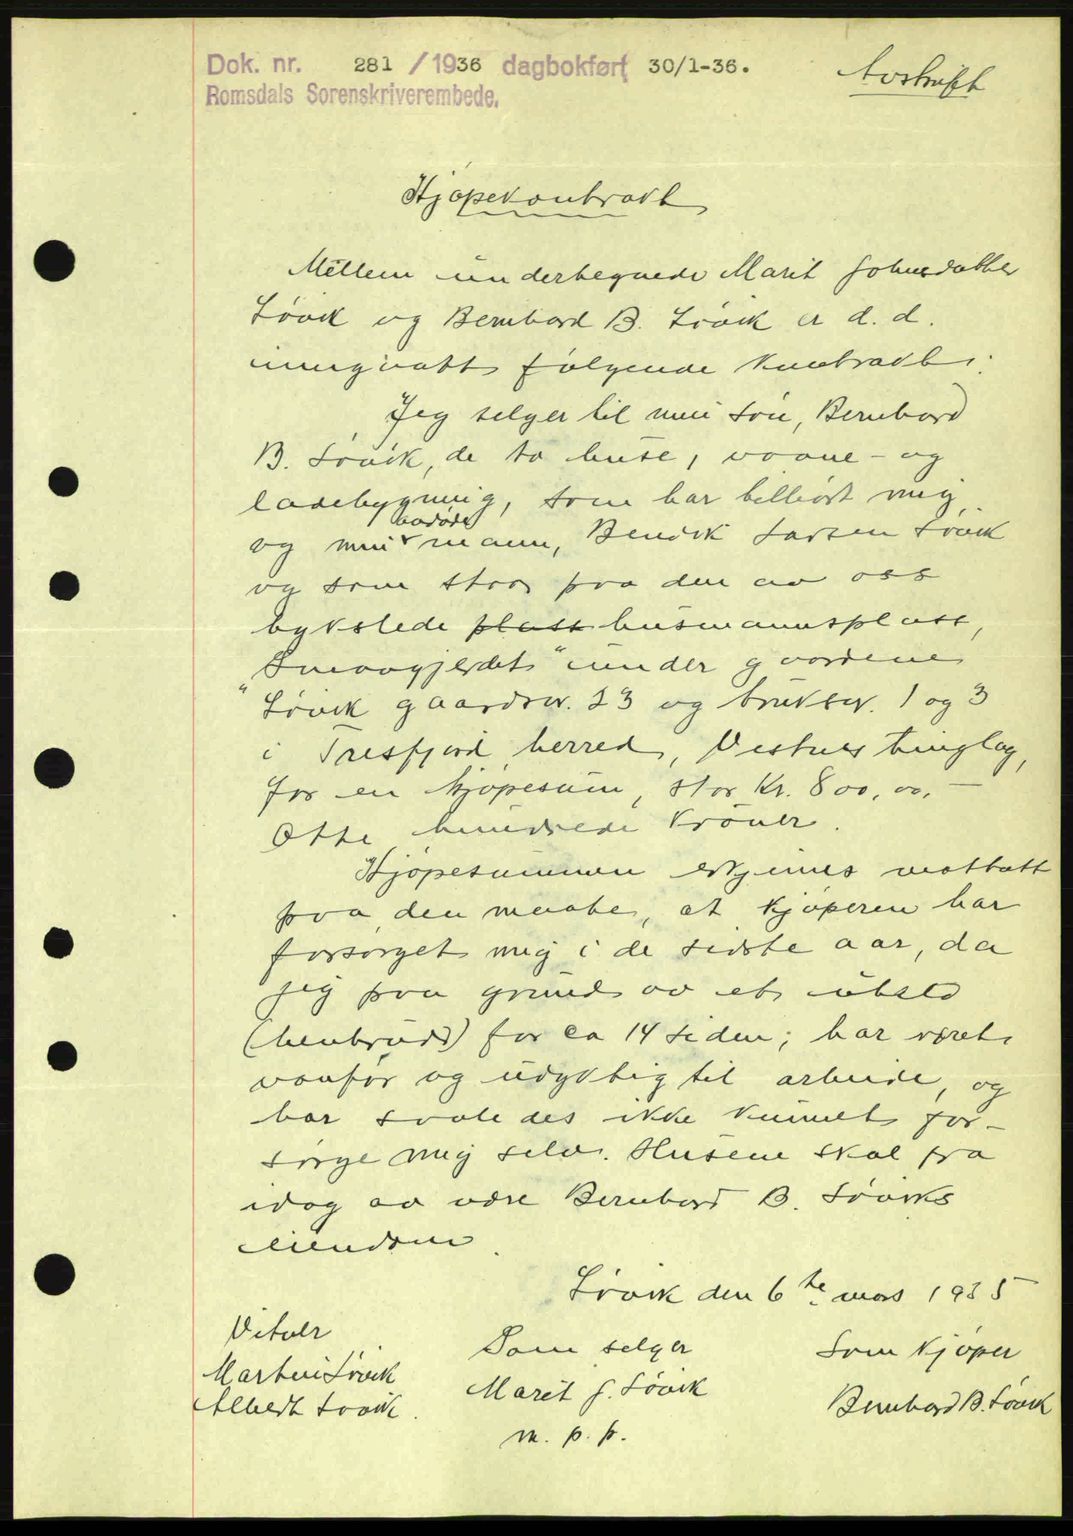 Dok. nr. 281 / 1936 dagbokført 30/1-36.
Romsdals Sorenskriverembede.
Avskrift
Kjøpekontrakt
Mellem undertegnede Marit Johnsdatter
Løvik og Bernhard B. Løvik er d.d.
inngaatt følgende kontrakt:
Jeg selger til min søn, Bernhard
B. Løvik, de to huse, vaane- og
ladebygning, som har tilhørt mig
og min avdøde mann, Bendik Larsen Løvik
og som staar paa den av oss
bykslede plass husmannsplass,
"Smaagjerdet" under gaardene
Løvik gaardsnr. 23 og bruksnr. 1 og 3
i Tresfjord herred, Vestnes tinglag,
for en kjøpesum, stor Kr. 800,00,-
Otte hundrede Kroner.
Kjøpesummen erkjennes mottatt
paa den maate, at kjøperen har
forsørget mig i de sidste aar, da
jeg paa grund av et uheld
(benbrudd) for ca 14 siden; har været
vanfør og udyktig til arbeide, og
har saaledes ikke kunnet for-
sørge mig selv. Husene skal fra
idag av være Bernhard B. Løviks
eiendom.
Løvik den 6te mars 1935
Vitner
Martin Løvik
Albert Løvik.
Som selger
Marit J. Løvik
m. p. p.
Som kjøper
Bernhard B. Løvik